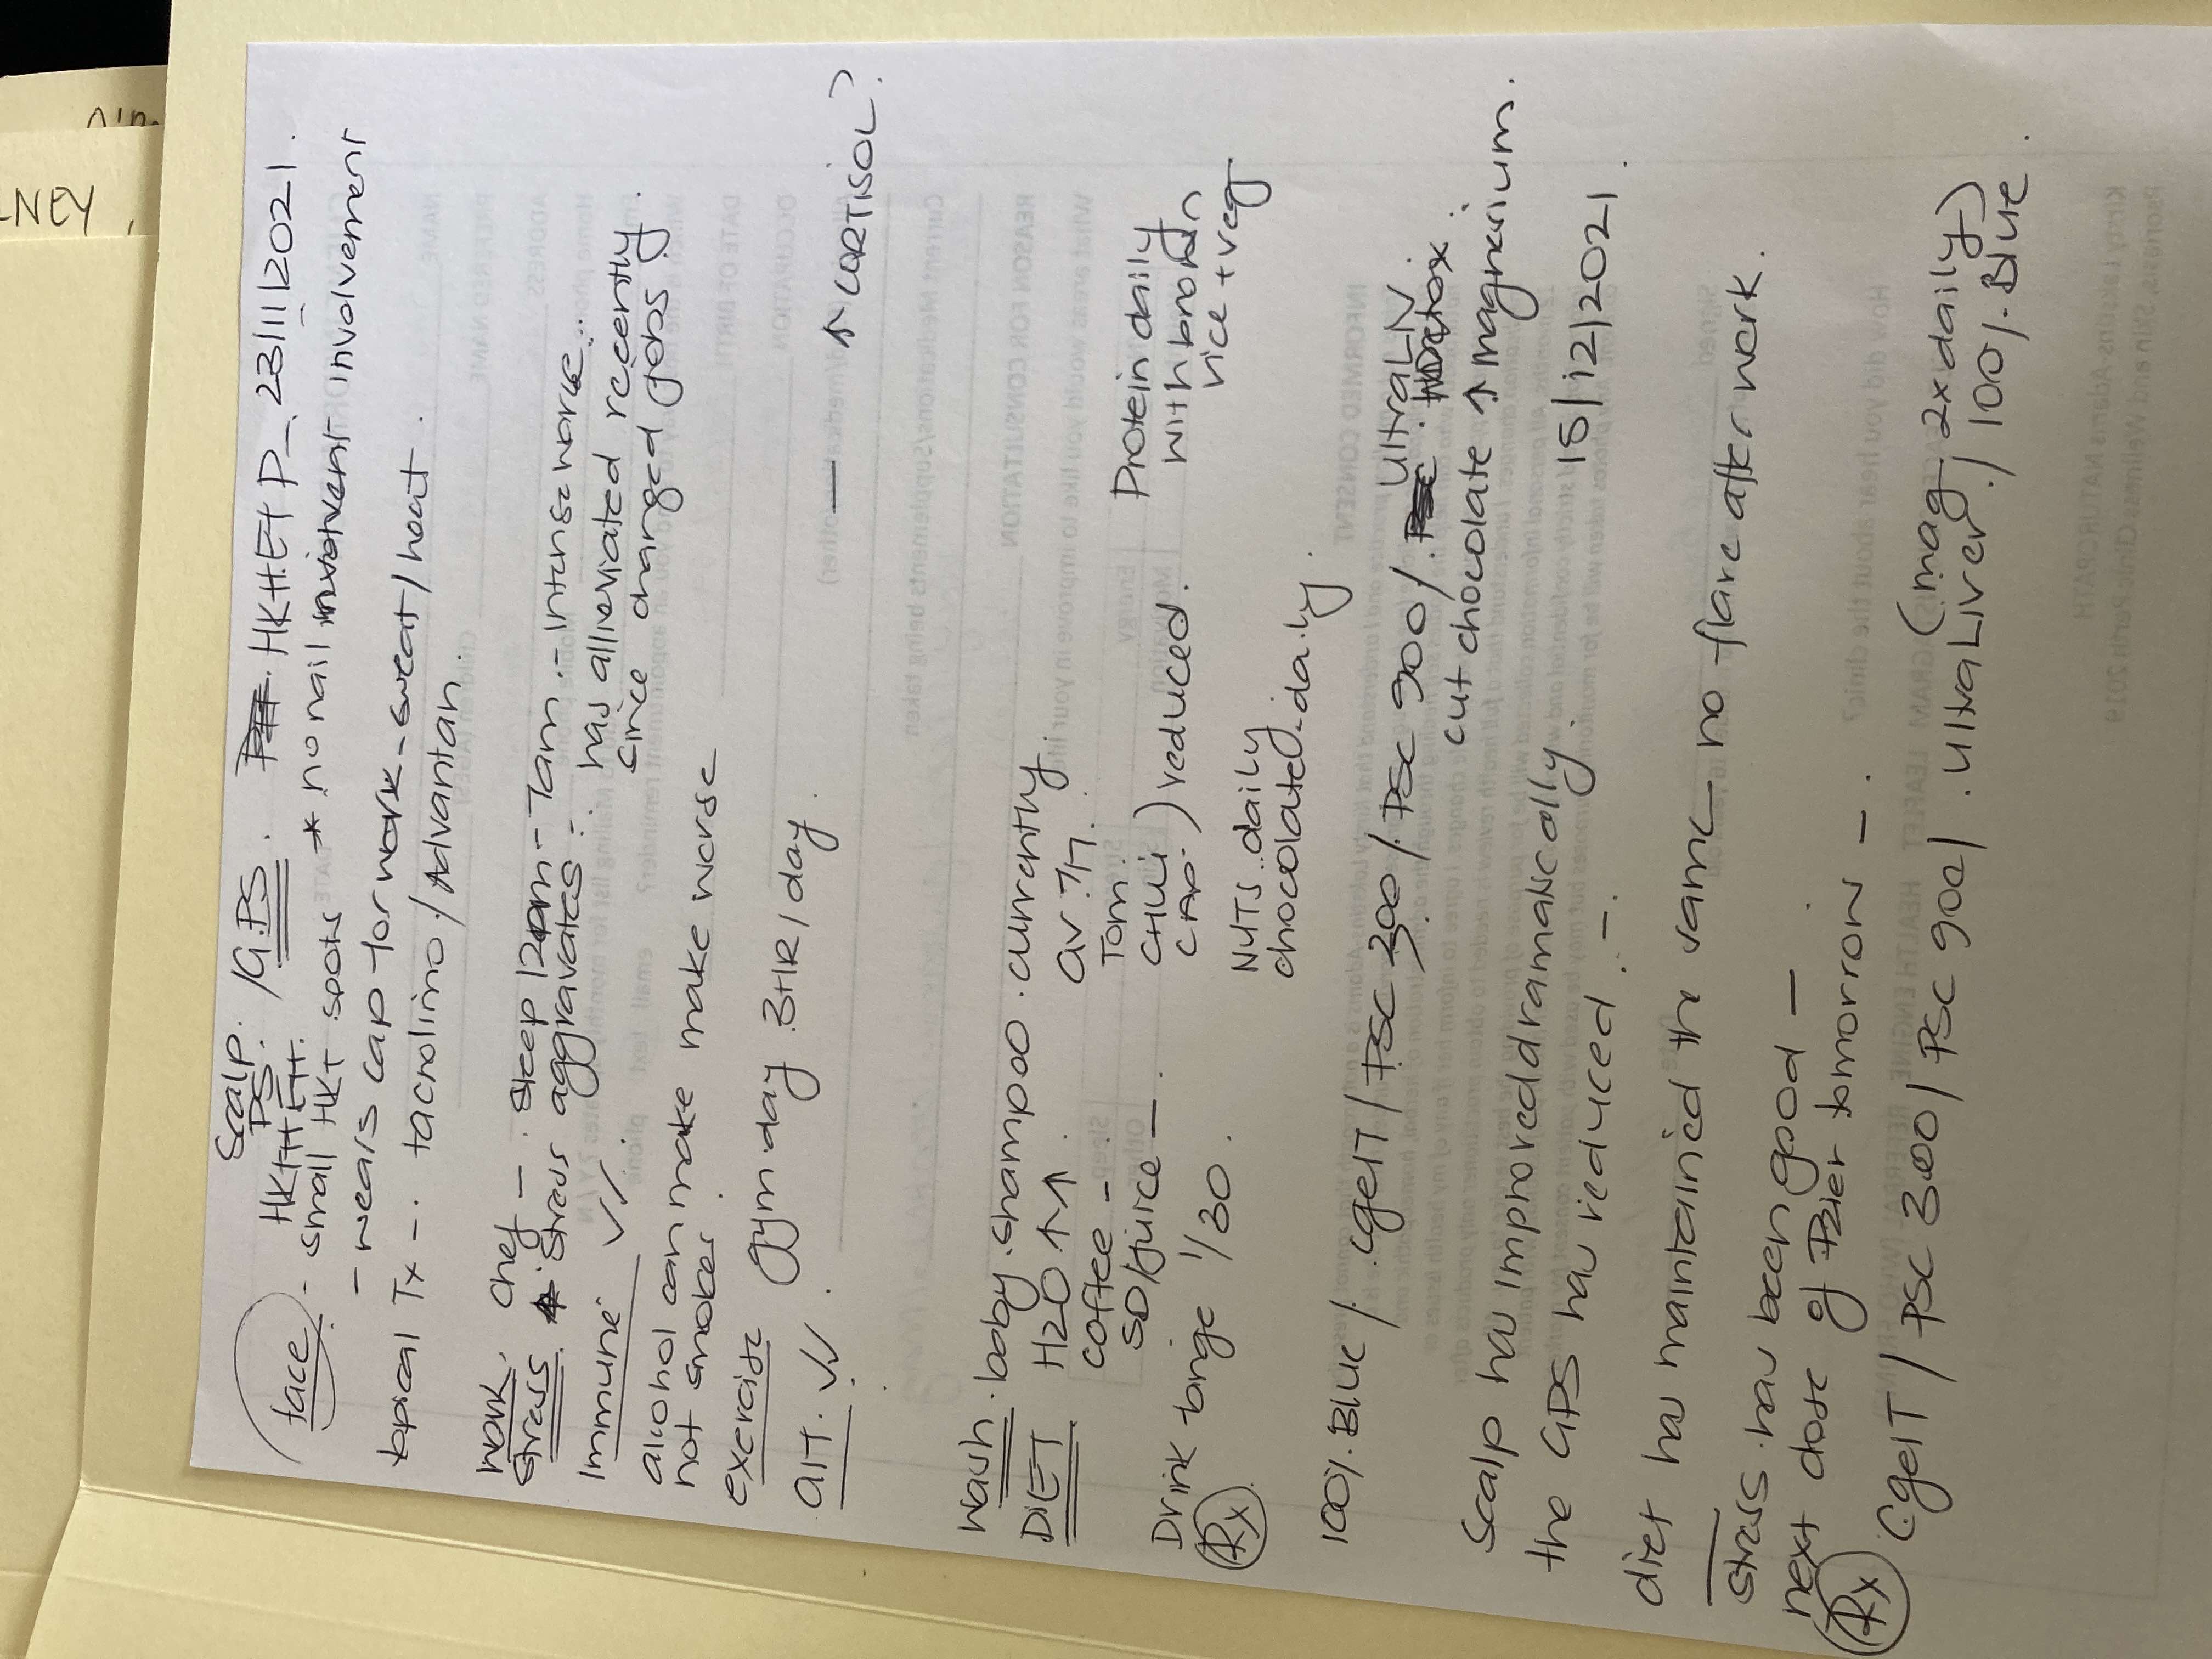 Scalp. /G.PS. HKTHETP_. 23/11/2021.
face PS.
HKTHETH.
- small HKT spots * no nail involvement
- wears cap for work - sweat/heat.
topical Tx - . tacrolimo / Advantan.
work. chef - . sleep 12am - 7am. - intense work.
stress. * stress aggravates: - has allieviated recently
since changed jobs.
Immune ✓✓.
alcohol can make make worse
not smoker
exercise gym day 3HR/day. — ↑ CORTISOL?
GIT. ✓✓.
wash. baby shampoo. currently.
DIET H2O ↑↑. GV 7/7.
coffee - Tom. Protein daily
SD/juice - . CHILI ) reduced. with broken
Drink binge 1/30. CAP. rice + veg
NUTS daily
chocolate daily.
Rx
100% Blue / . CgeIT / PSC 300 / . PSC 900 / . UltraLIV.
cut chocolate ↑ magnesium.
Scalp has improved dramatically. 15/12/2021.
the GPS has reduced. - .
diet has maintained the same - no flare after work.
stress. has been good -
next dose of Pzier tomorrow - .
Rx (mag. 2x daily)
CgeIT / PSC 300 / PSC 900 / . ultraLiver. / 100% Blue.
-NEY.